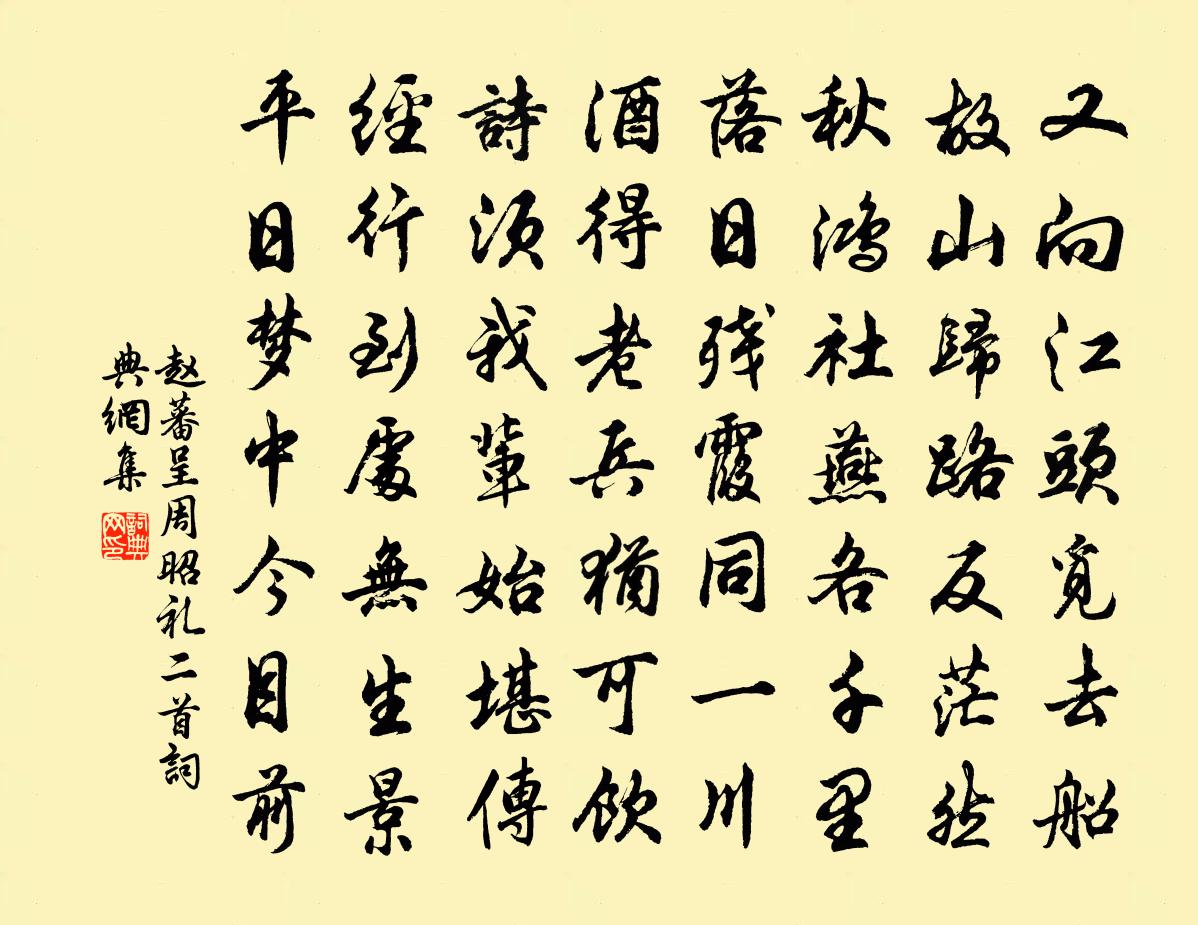 又向江頭覓去船
故山歸路反茫然
秋鴻社燕各千里
落日殘霞同一川
酒得老兵猶可飲
詩須我輩始堪傳
經行到處無生景
平日梦中今目前
赵蕃呈周昭礼二首詞
典網集
詞典
网印